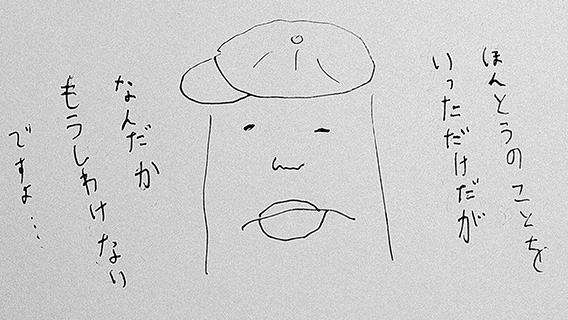 ほんとうのことを
いっただけだが
なんだか
もうしわけない
ですよ…